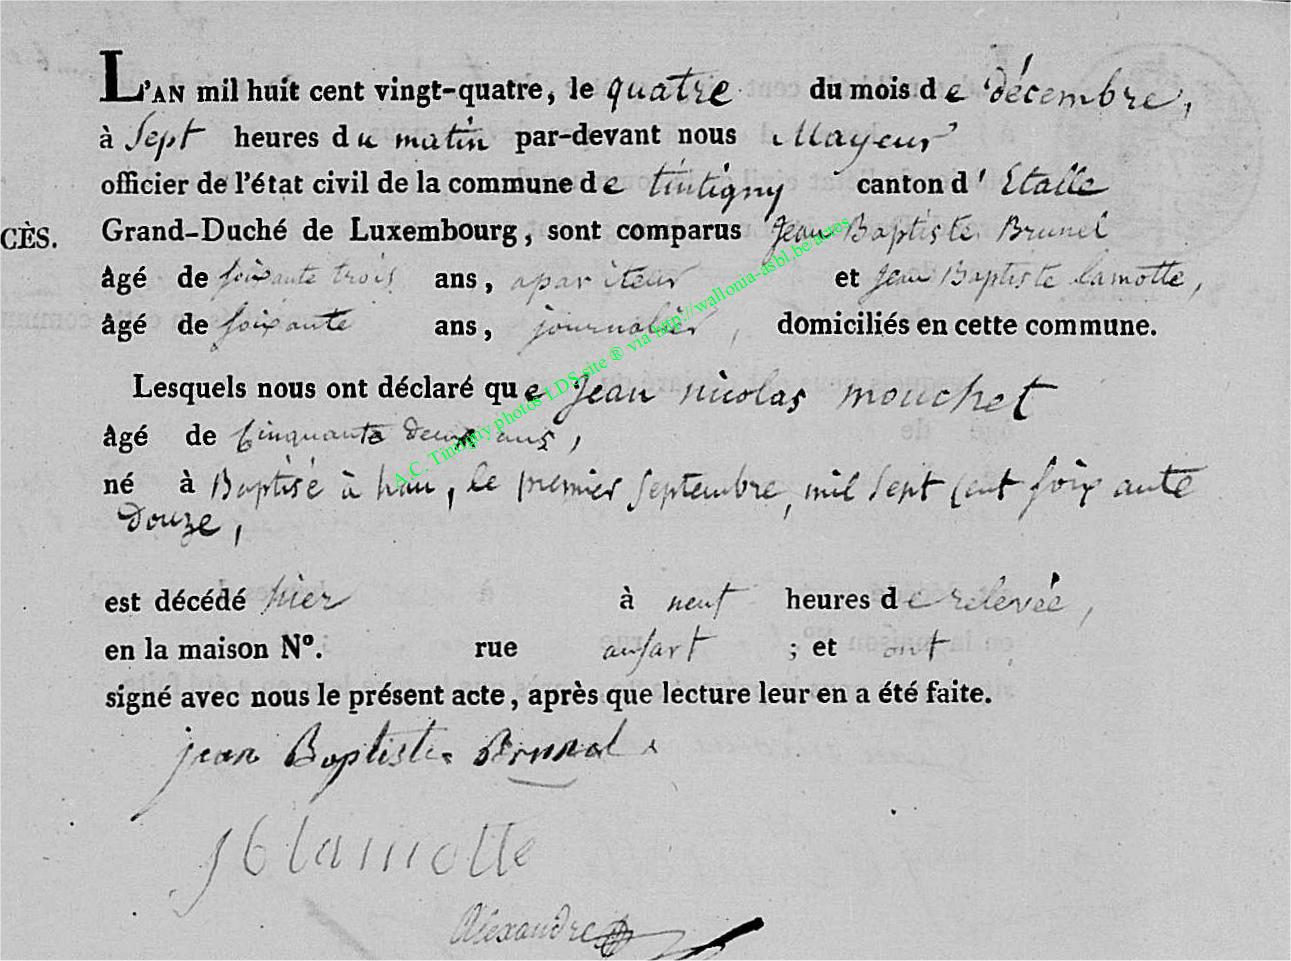 L'AN mil huit cent vingt-quatre, le quatre du mois de décembre,
à Sept heures du matin par-devant nous Mayeur
officier de l'état civil de la commune de tintigny canton d'Etalle
CÈS. Grand-Duché de Luxembourg, sont comparus Jean Baptiste Brunel
âgé de soixante trois ans, apariteur et Jean Baptiste lamotte,
âgé de soixante ans, journalier, domiciliés en cette commune.
Lesquels nous ont déclaré que Jean nicolas mouchet
âgé de Cinquante deux ans,
né à Baptisé à han, le premier Septembre, mil Sept Cent soixante
douze,
est décédé hier à neuf heures de relevée,
en la maison N°. rue ansart ; et ont
signé avec nous le présent acte, après que lecture leur en a été faite.
jean Baptiste Brunel
J b lamotte
Alexandre
A.C. Tintigny photos LDS site ® via http://wallonia-asbl.be/actes